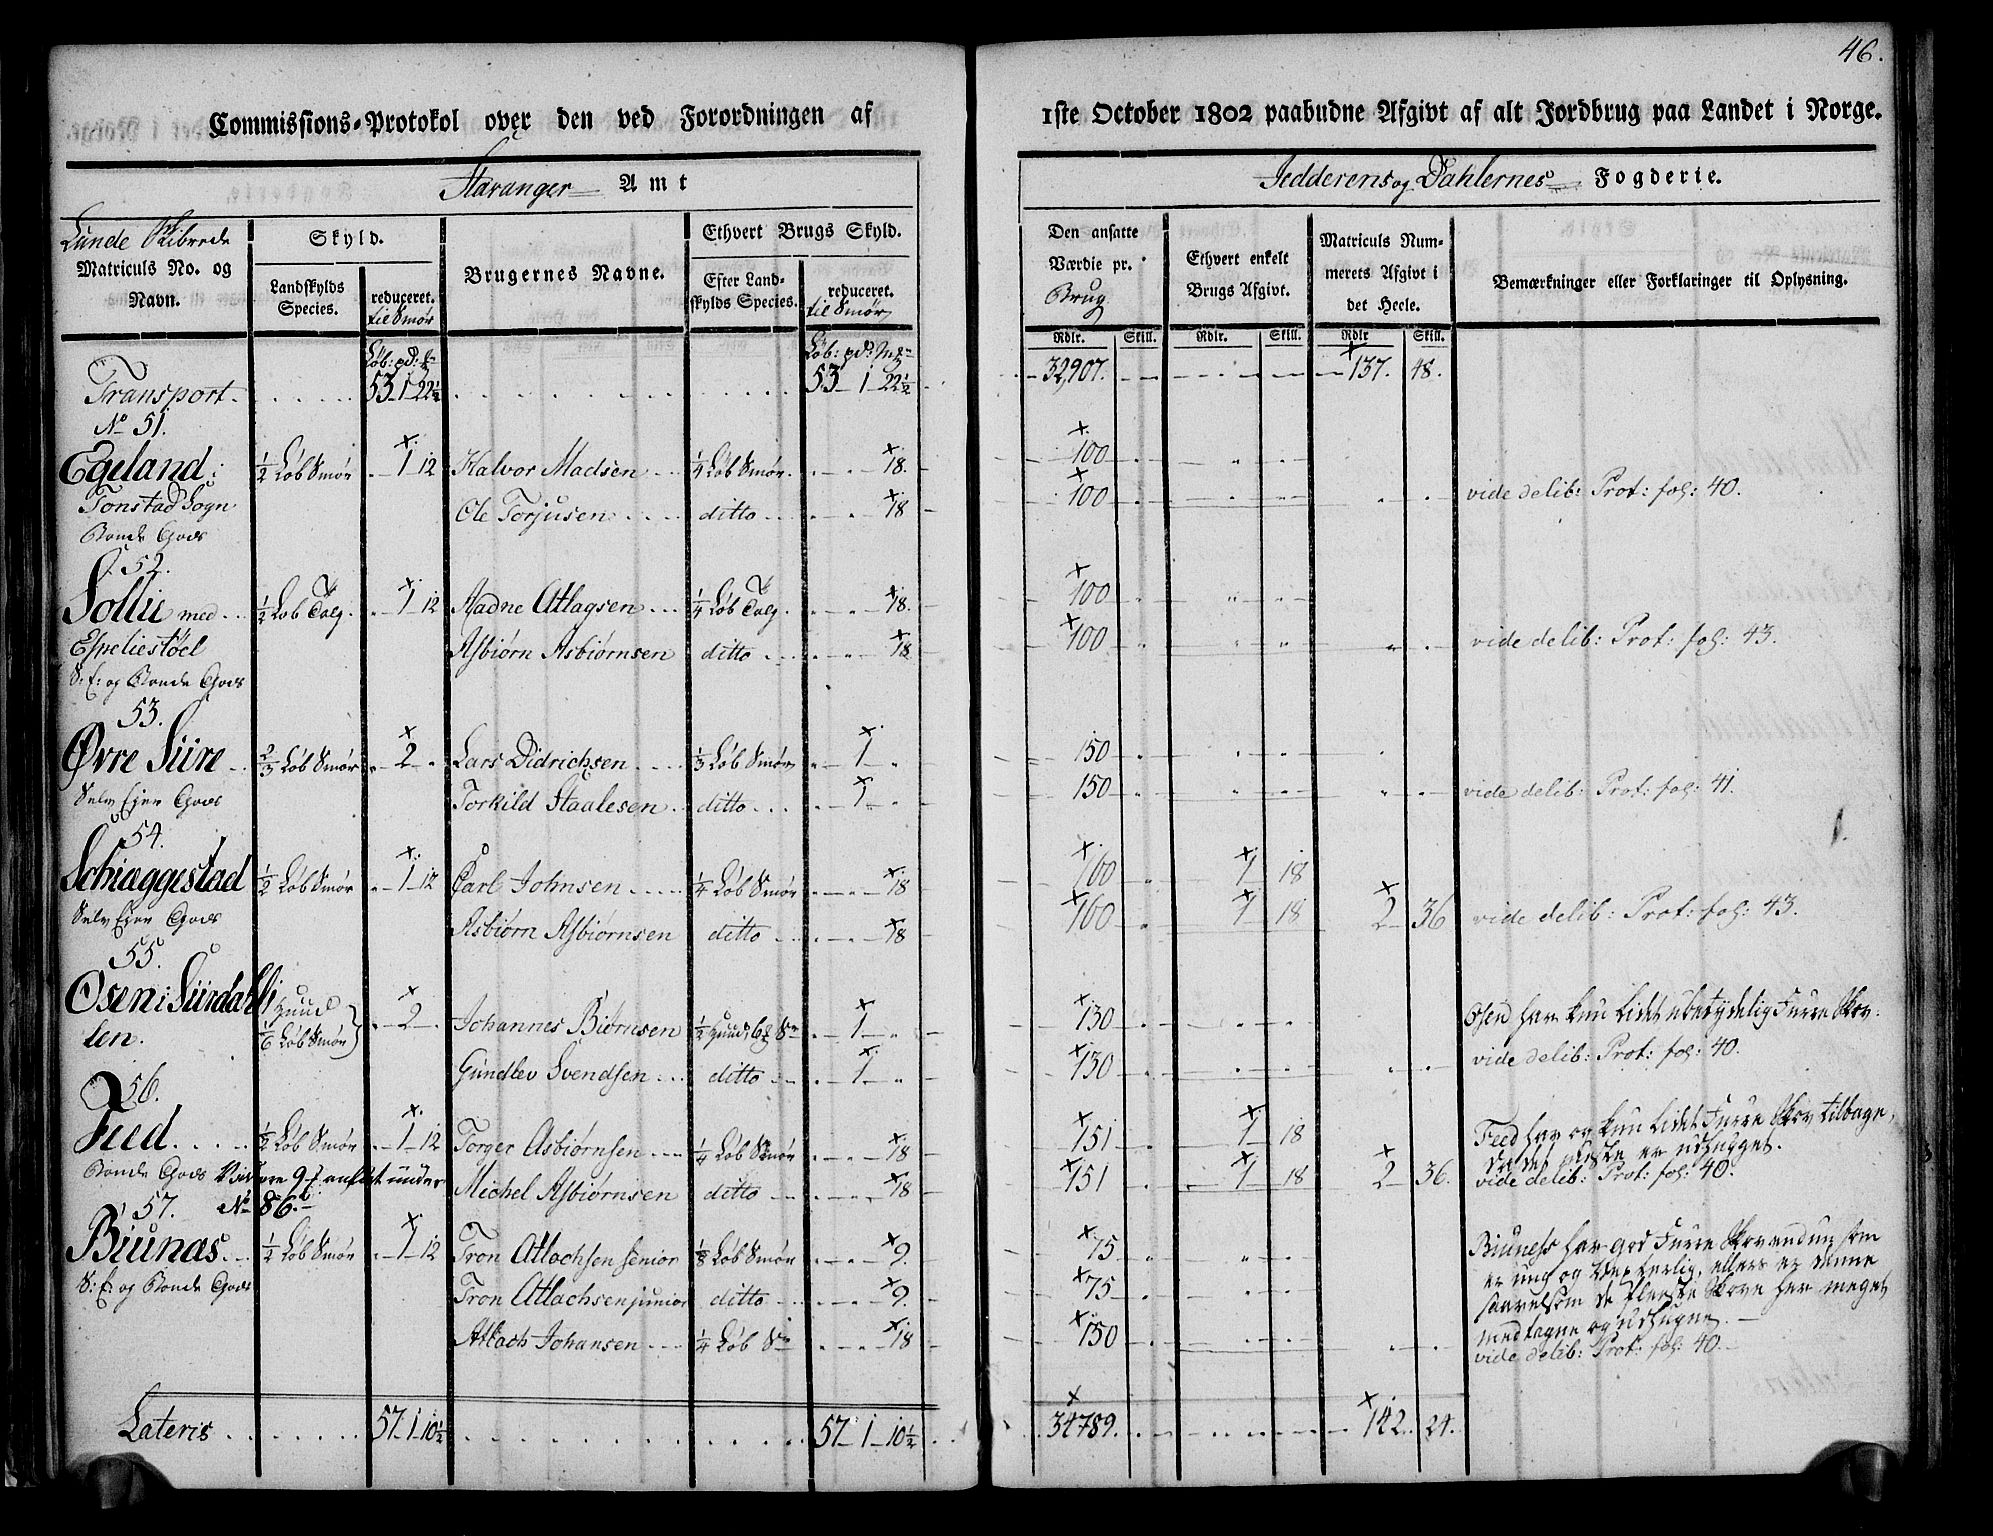 46.
Commissions-Protokol over den ved Forordningen af 1ste October 1802 paabudne Afgivt af alt Jordbrug paa Landet i Norge.
Stavanger Amt
Jedderens og Dahlernes Fogderie.
Lunde Skibrede
Matriculs No. og Navn.
Skyld.
Landskylds Species.
reduceret. til Smør
Brugernes Navne.
Ethvert Brugs Skyld.
Efter Landskylds Species.
reduceret. til Smør
Den ansatte Værdie pr. Brug
Ethvert enkelt Brugs Afgivt.
Matriculs Nummerets Afgivt i det Heele.
Bemærkninger eller Forklaringer til Oplysning.
Rdlr. Skill. Rdlr. Skill. Rdlr Skill.
Løb: pd: Løb: pd:
Transport 53 1 22½ 53 1 22½ 32,907. 137. 48.
No 51.
Egeland: ½ Løb Smør 1 12 Halvor Madsen ¼ Løb Smør 18 100
Tonstad Sogn Ole Torjusen ditto 18 100 vide delib: Prot: fol: 40.
Bonde Gods
52.
Sollie med ½ Løb Talg 1 12 Aadne Atlagsen ¼ Løb Talg 18. 100
Espeliestøel Asbiørn Asbiørnsen ditto 18 100 vide delib: Prot: fol: 43.
S: E: og Bonde Gods
53.
Øvre Siire ⅔ Løb Smør 2 Lars Didrichsen ⅓ Løb Smør 1 150
Selv Ejer Gods Torkild Staalesen ditto 1 150 vide delib: Prot: fol: 41.
54.
Schiæggestad ½ Løb Smør 1 12 Carl Johnsen ¼ Løb Smør 18 160 1 18
Selv Ejer Gods Asbiørn Asbiørnsen ditto 18 160 1 18 2 36 vide delib: Prot: fol: 43.
55.
Osen i Siirdahlen. 1 Huud ⅙ Løb Smør 2 Johannes Biørnsen ½ Huud 1 130 Osen har kun lidet ubetydelig Furre Skov.
Gundlev Svendsen ditto 1 130 vide delib: Prot: fol: 40.
56.
Feed ½ Løb Smør 1 12 Torger Asbiørnsen ¼ Løb Smør 18 151 1 18 Feed har og kun lidet Furre Skov tilbage,
da det meste er udhugget.
Bonde Gods anført under No 86. Michel Asbiørnsen ditto 18 151 1 18 2 36. vide delib: Prot: fol: 40.
57.
Biunas ½ Løb Smør 1 12 Tron Atlachsen senior ⅛ Løb Smør 9. 75 Biuness har god Furre Skov endun som
er ung og Vexterlig, ellers er denne
S: E: og Bonde Gods Tron Atlachsen junior ditto 9. 75 saavelsom de fleeste Skove her meget
medtagne og udhugne.
Atlach Johansen ¼ Løb 18 150 vide delib: Prot: fol: 40.
Lateris 57 1 10½ 57 1 10½ 34789. 142. 24.